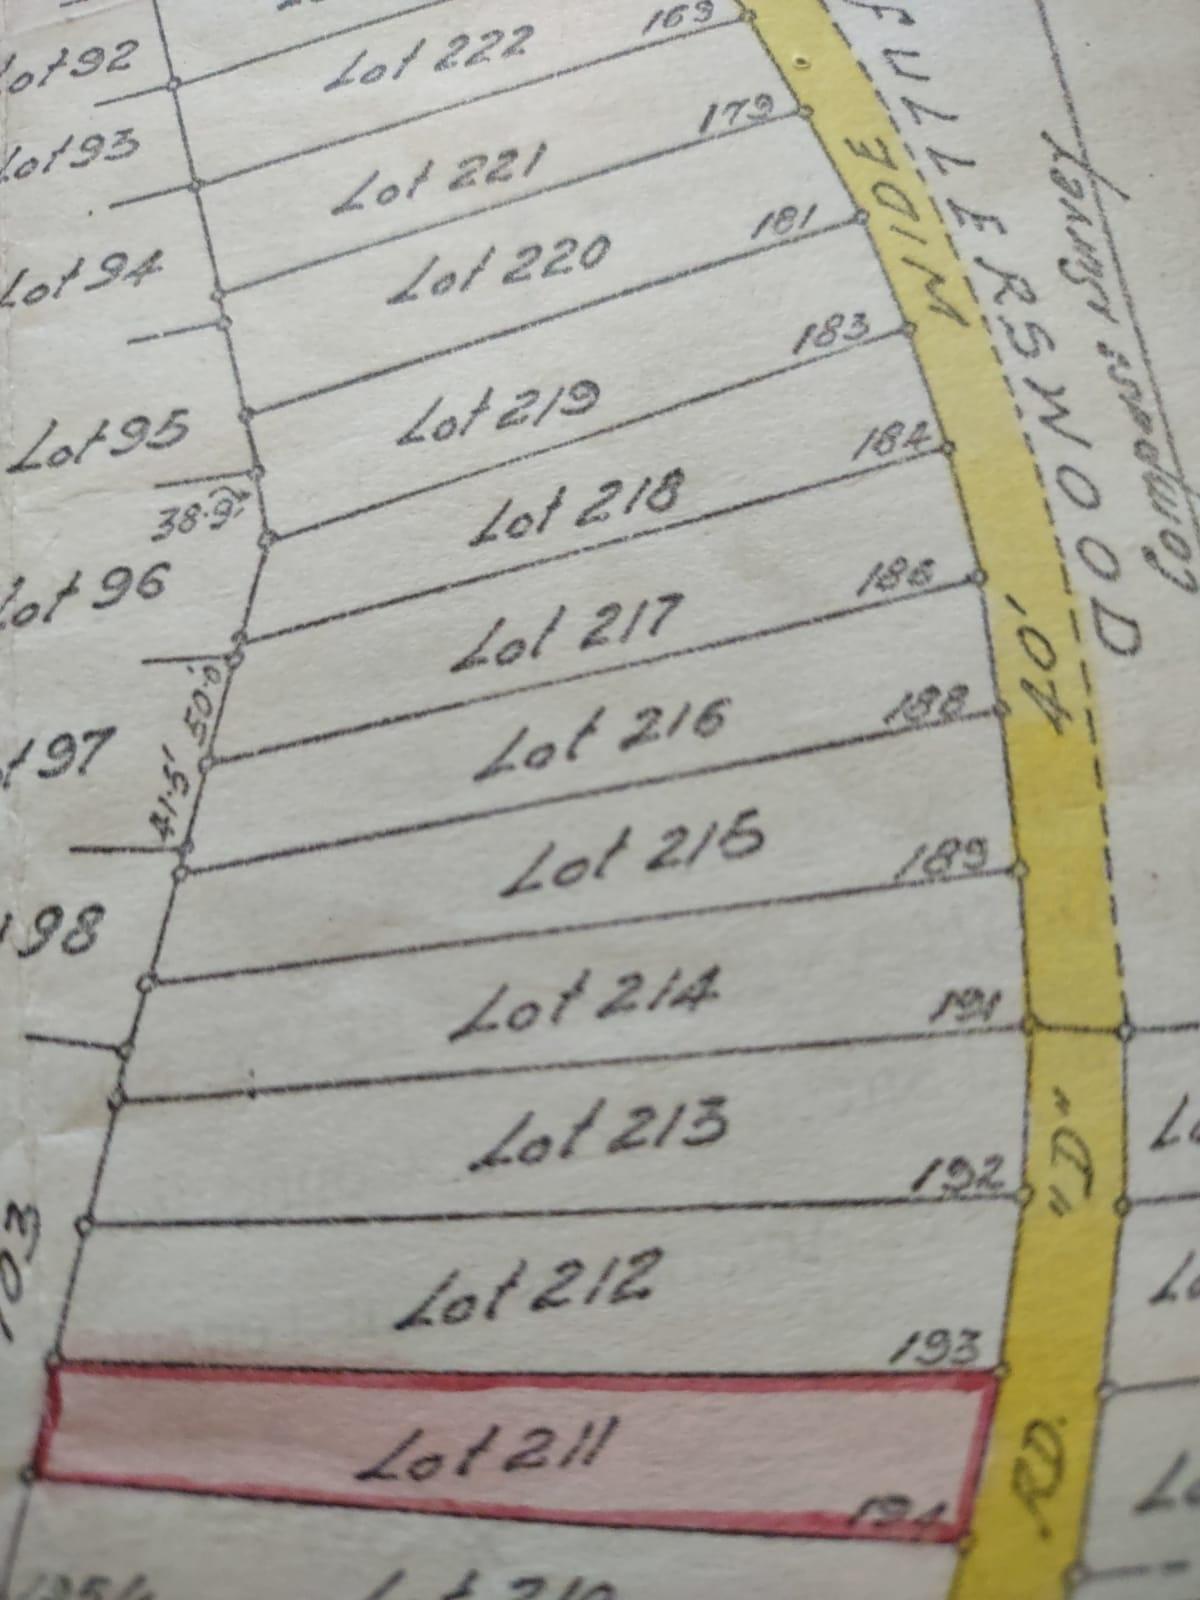 Lot 92
Lot 222
169
Lot 93
Lot 221
179
Lot 94
Lot 220
181
WIDE
Lot 95
Lot 219
183
FULLERSWOOD
38.9'
Lot 218
184
Lot 96
Lot 217
186
50.0'
40'
t 97
Lot 216
188
41.5'
Lot 215
189
98
Lot 214
191
Lot 213
192
"D"
103
Lot 212
193
Lot 211
194
RD.
Lot 210
Lo
Lo
Lo